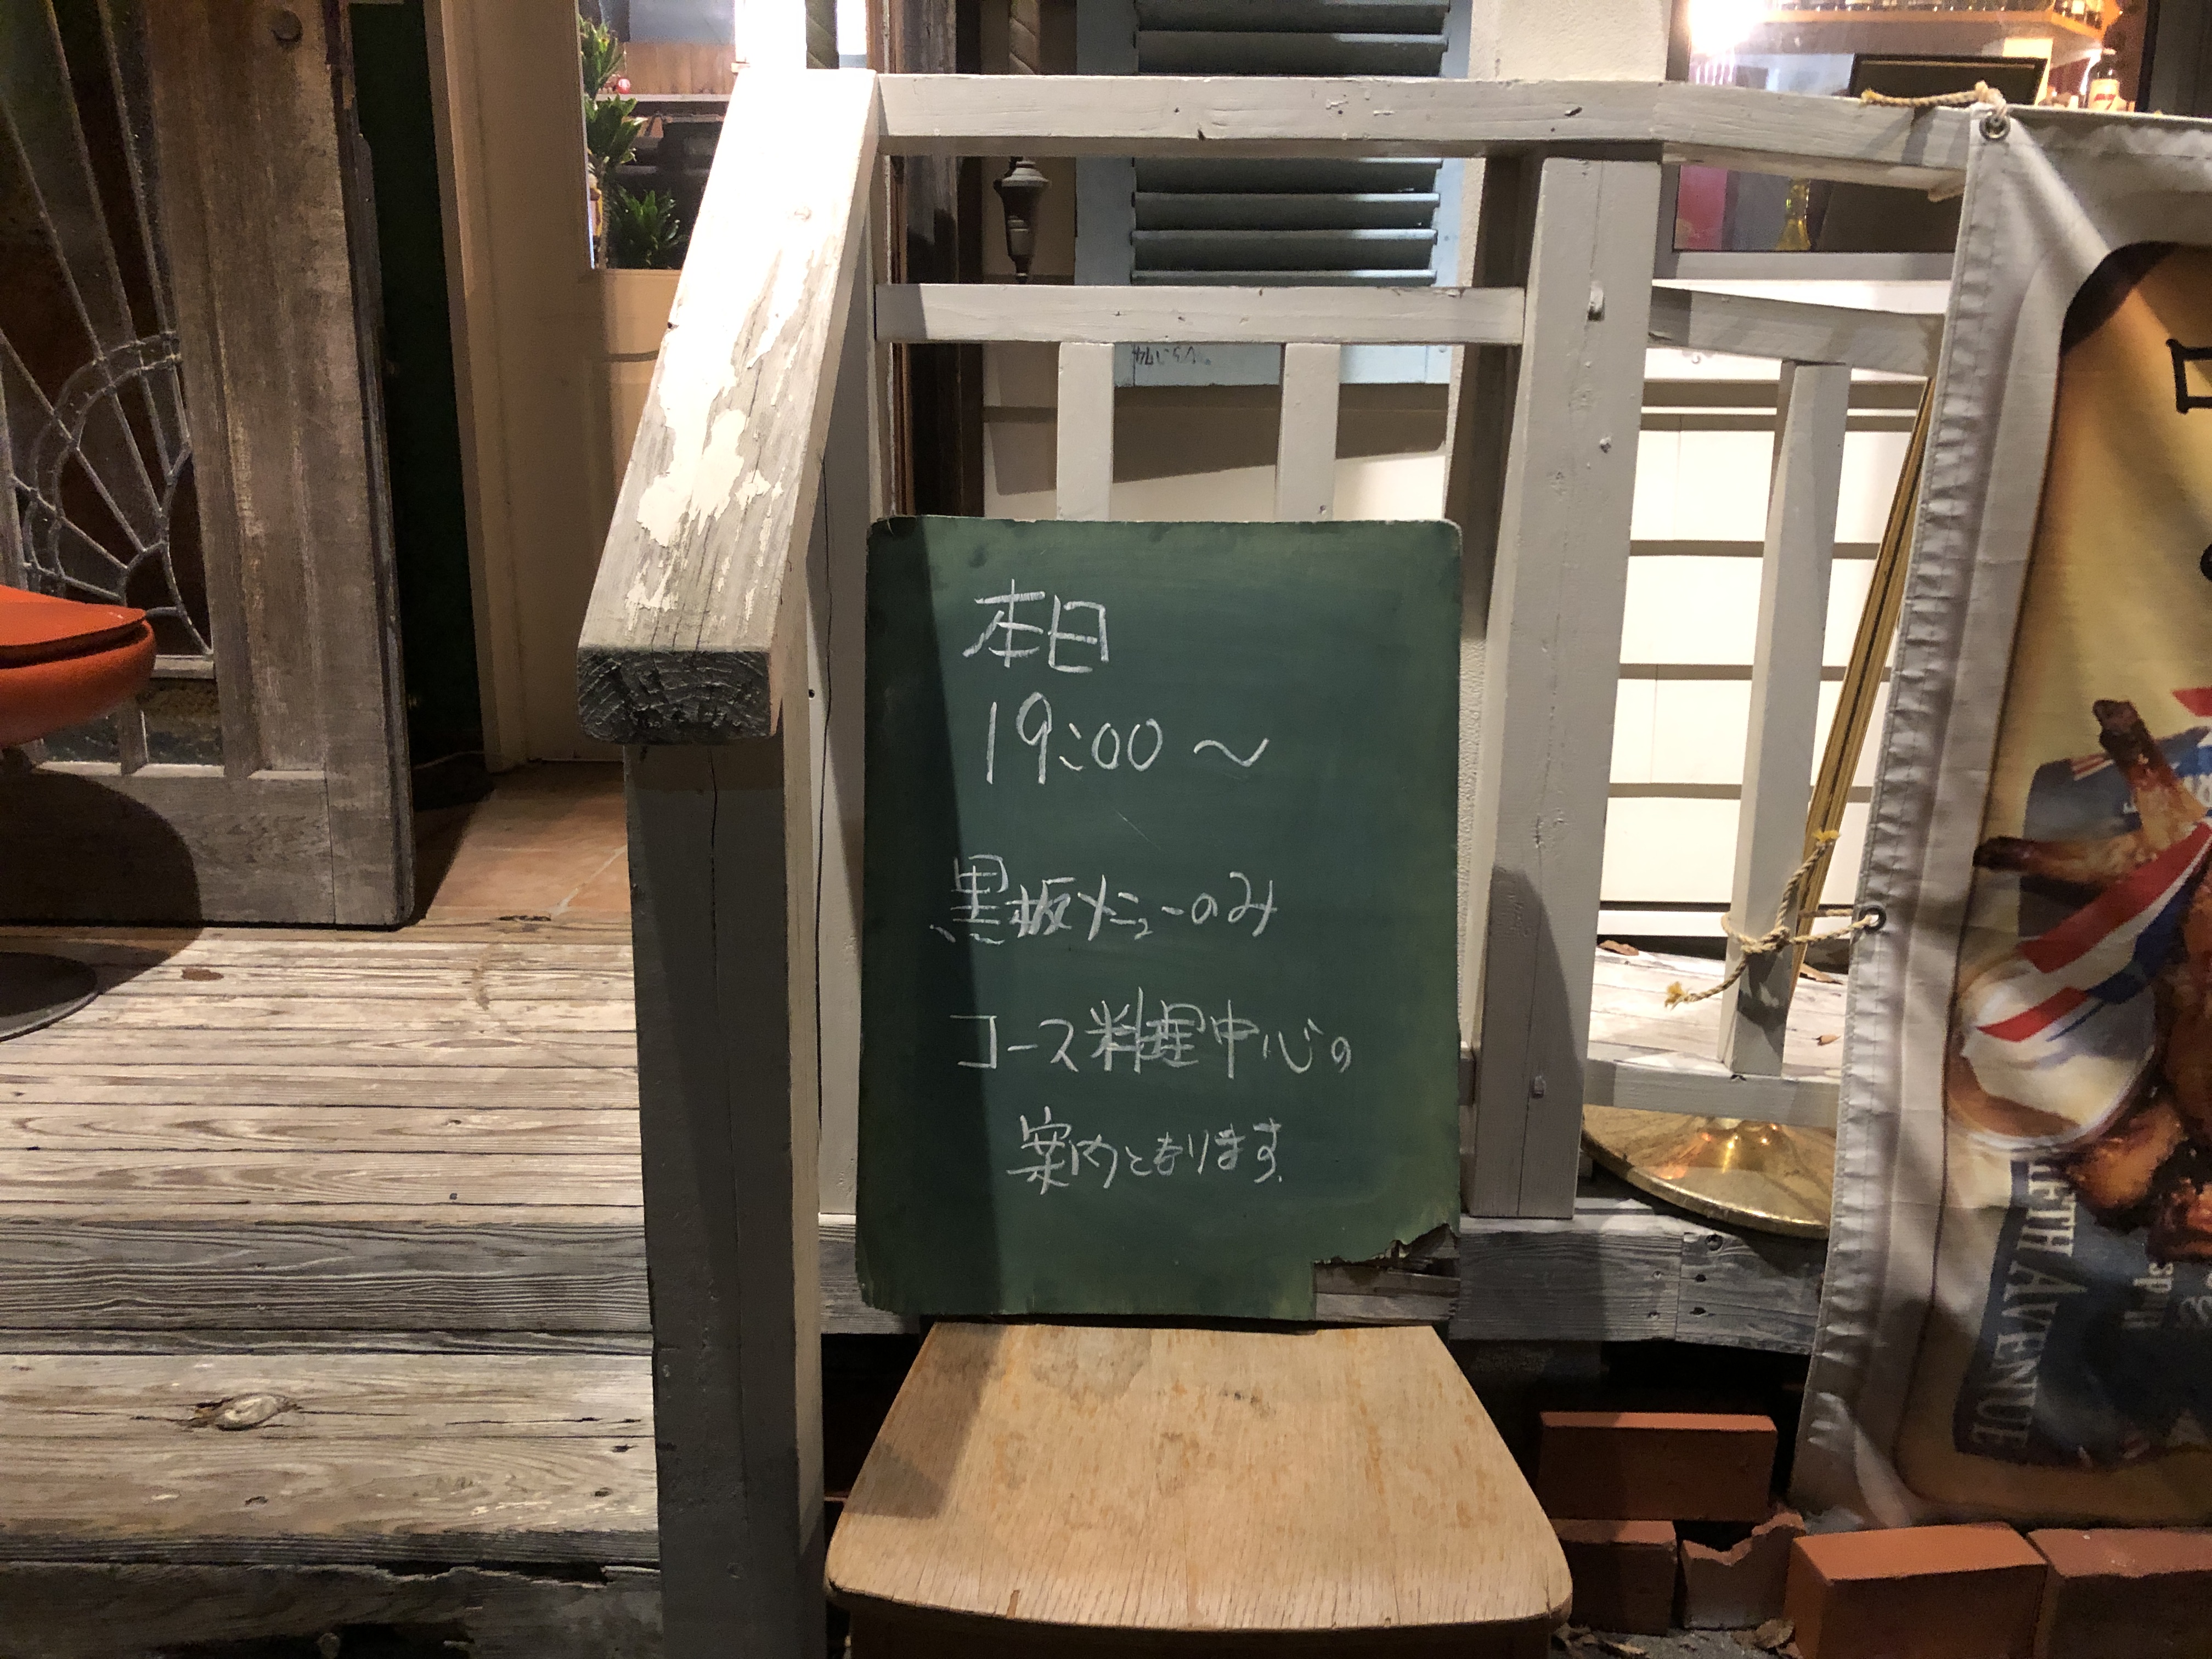 本日
19:00～
黒板メニューのみ
コース料理中心の
案内となります.
AVENUE